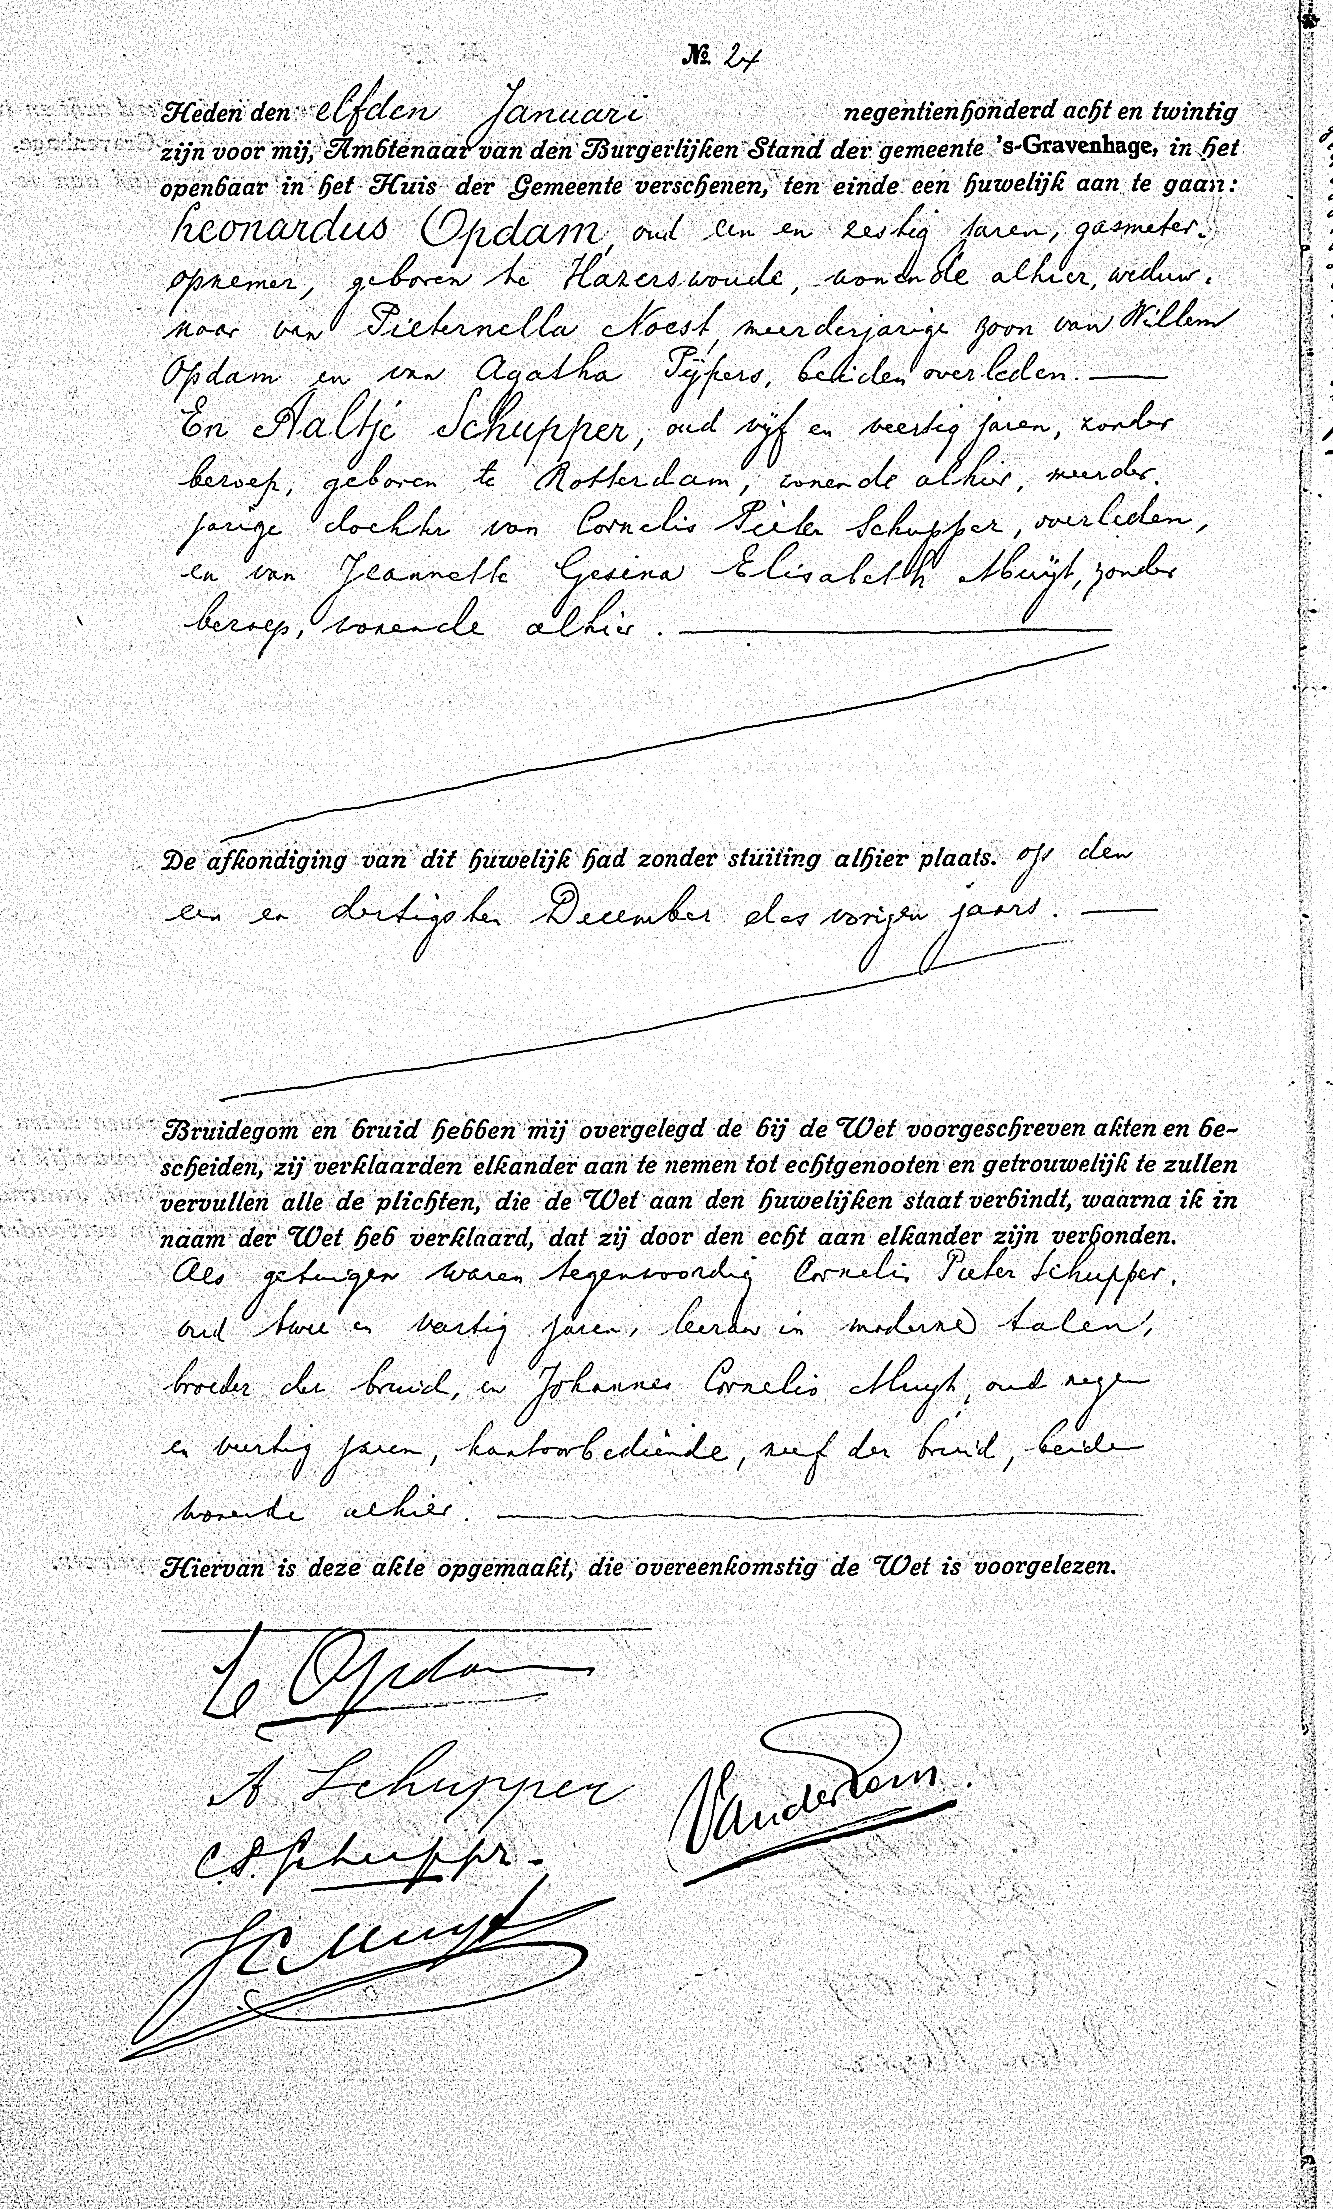 № 24
Heden den elfden Januari negentienhonderd acht en twintig
zijn voor mij, Ambtenaar van den Burgerlijken Stand der gemeente 's-Gravenhage, in het
openbaar in het Huis der Gemeente verschenen, ten einde een huwelijk aan te gaan:
Leonardus Opdam, oud een en zestig jaren, gasmeter-
opnemer, geboren te Hazerswoude, wonende alhier, weduw-
naar van Pieternella Noest, meerderjarige zoon van Willem
Opdam en van Agatha Pijpers, beiden overleden. —
En Aaltje Schupper, oud vijf en veertig jaren, zonder
beroep, geboren te Rotterdam, wonende alhier, meerder-
jarige dochter van Cornelis Pieter Schupper, overleden,
en van Jeannette Gesina Elisabeth Muijt, zonder
beroep, wonende alhier. —
De afkondiging van dit huwelijk had zonder stuiting alhier plaats. op den
een en dertigsten December des vorigen jaars. —
Bruidegom en bruid hebben mij overgelegd de bij de Wet voorgeschreven akten en be-
scheiden, zij verklaarden elkander aan te nemen tot echtgenooten en getrouwelijk te zullen
vervullen alle de plichten, die de Wet aan den huwelijken staat verbindt, waarna ik in
naam der Wet heb verklaard, dat zij door den echt aan elkander zijn verbonden.
Als getuigen waren tegenwoordig Cornelis Pieter Schupper,
oud twee en veertig jaren, leeraar in moderne talen,
broeder der bruid, en Johannes Cornelis Muijt, oud negen
en veertig jaren, kantoorbediende, neef der bruid, beiden
wonende alhier. —
Hiervan is deze akte opgemaakt, die overeenkomstig de Wet is voorgelezen.
L Opdam
A Schupper
C.P. Schupper.
JC Muyt